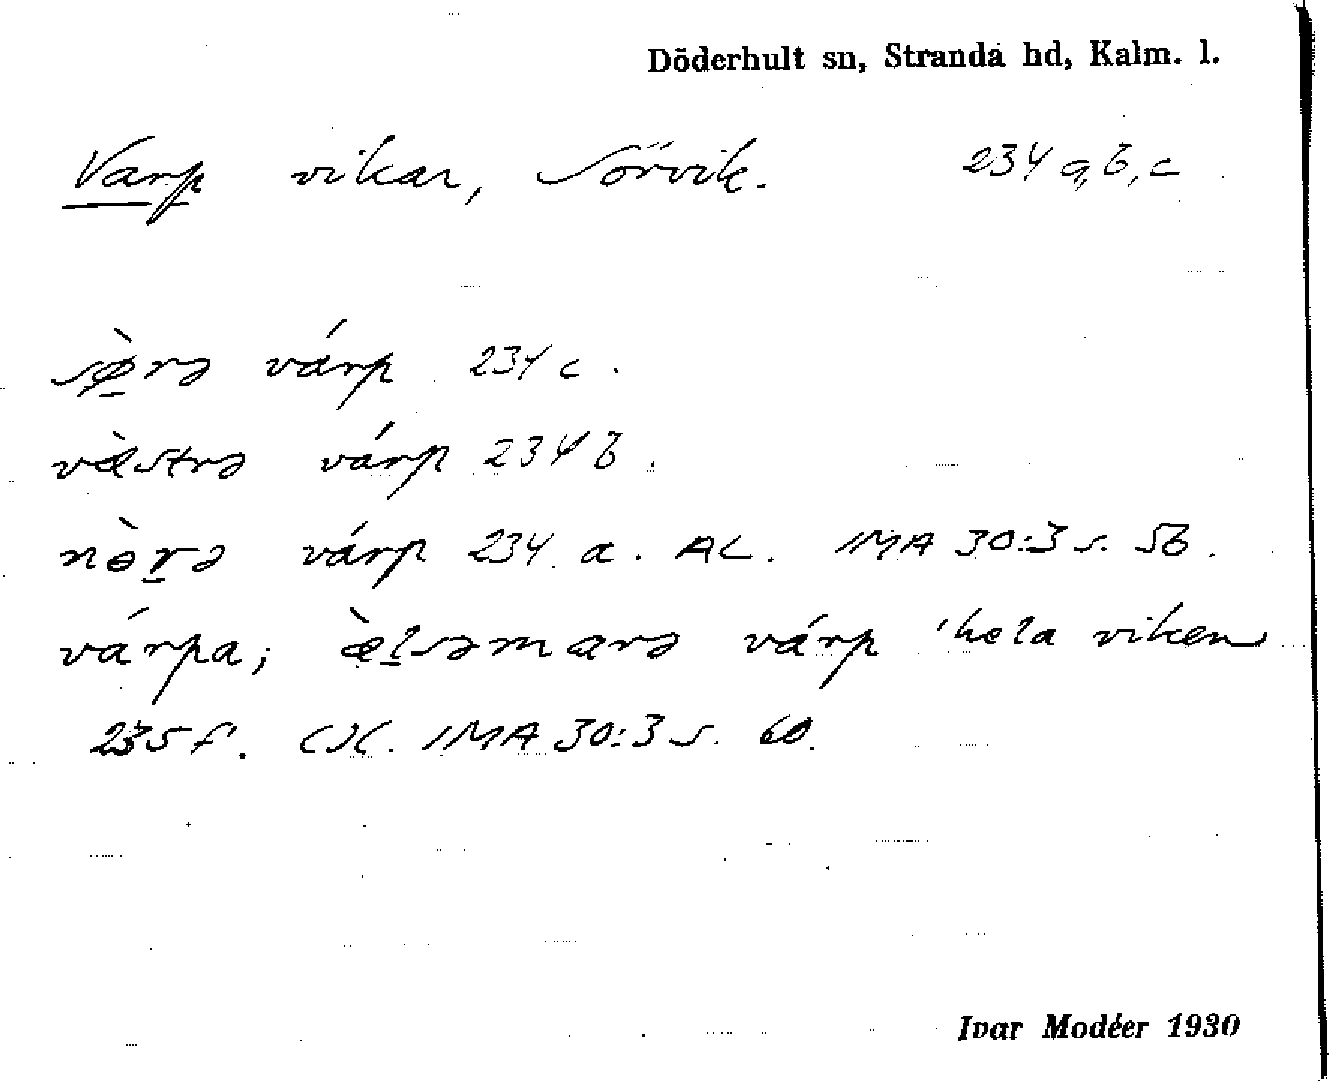 Döderhult sn, Stranda hd, Kalm. l.
Varp vikar, Sörvik. 234 a, b, c
sø̠̀rə várp 234 c.
vàstrə várp 234 b.
nèr̠ə várp 234 a. AL. IMA 30:3 s. 56.
várpa; æ̀l̠səmarə várp 'hela viken
235 f. CJC. IMA 30:3 s. 60.
Ivar Modéer 1930